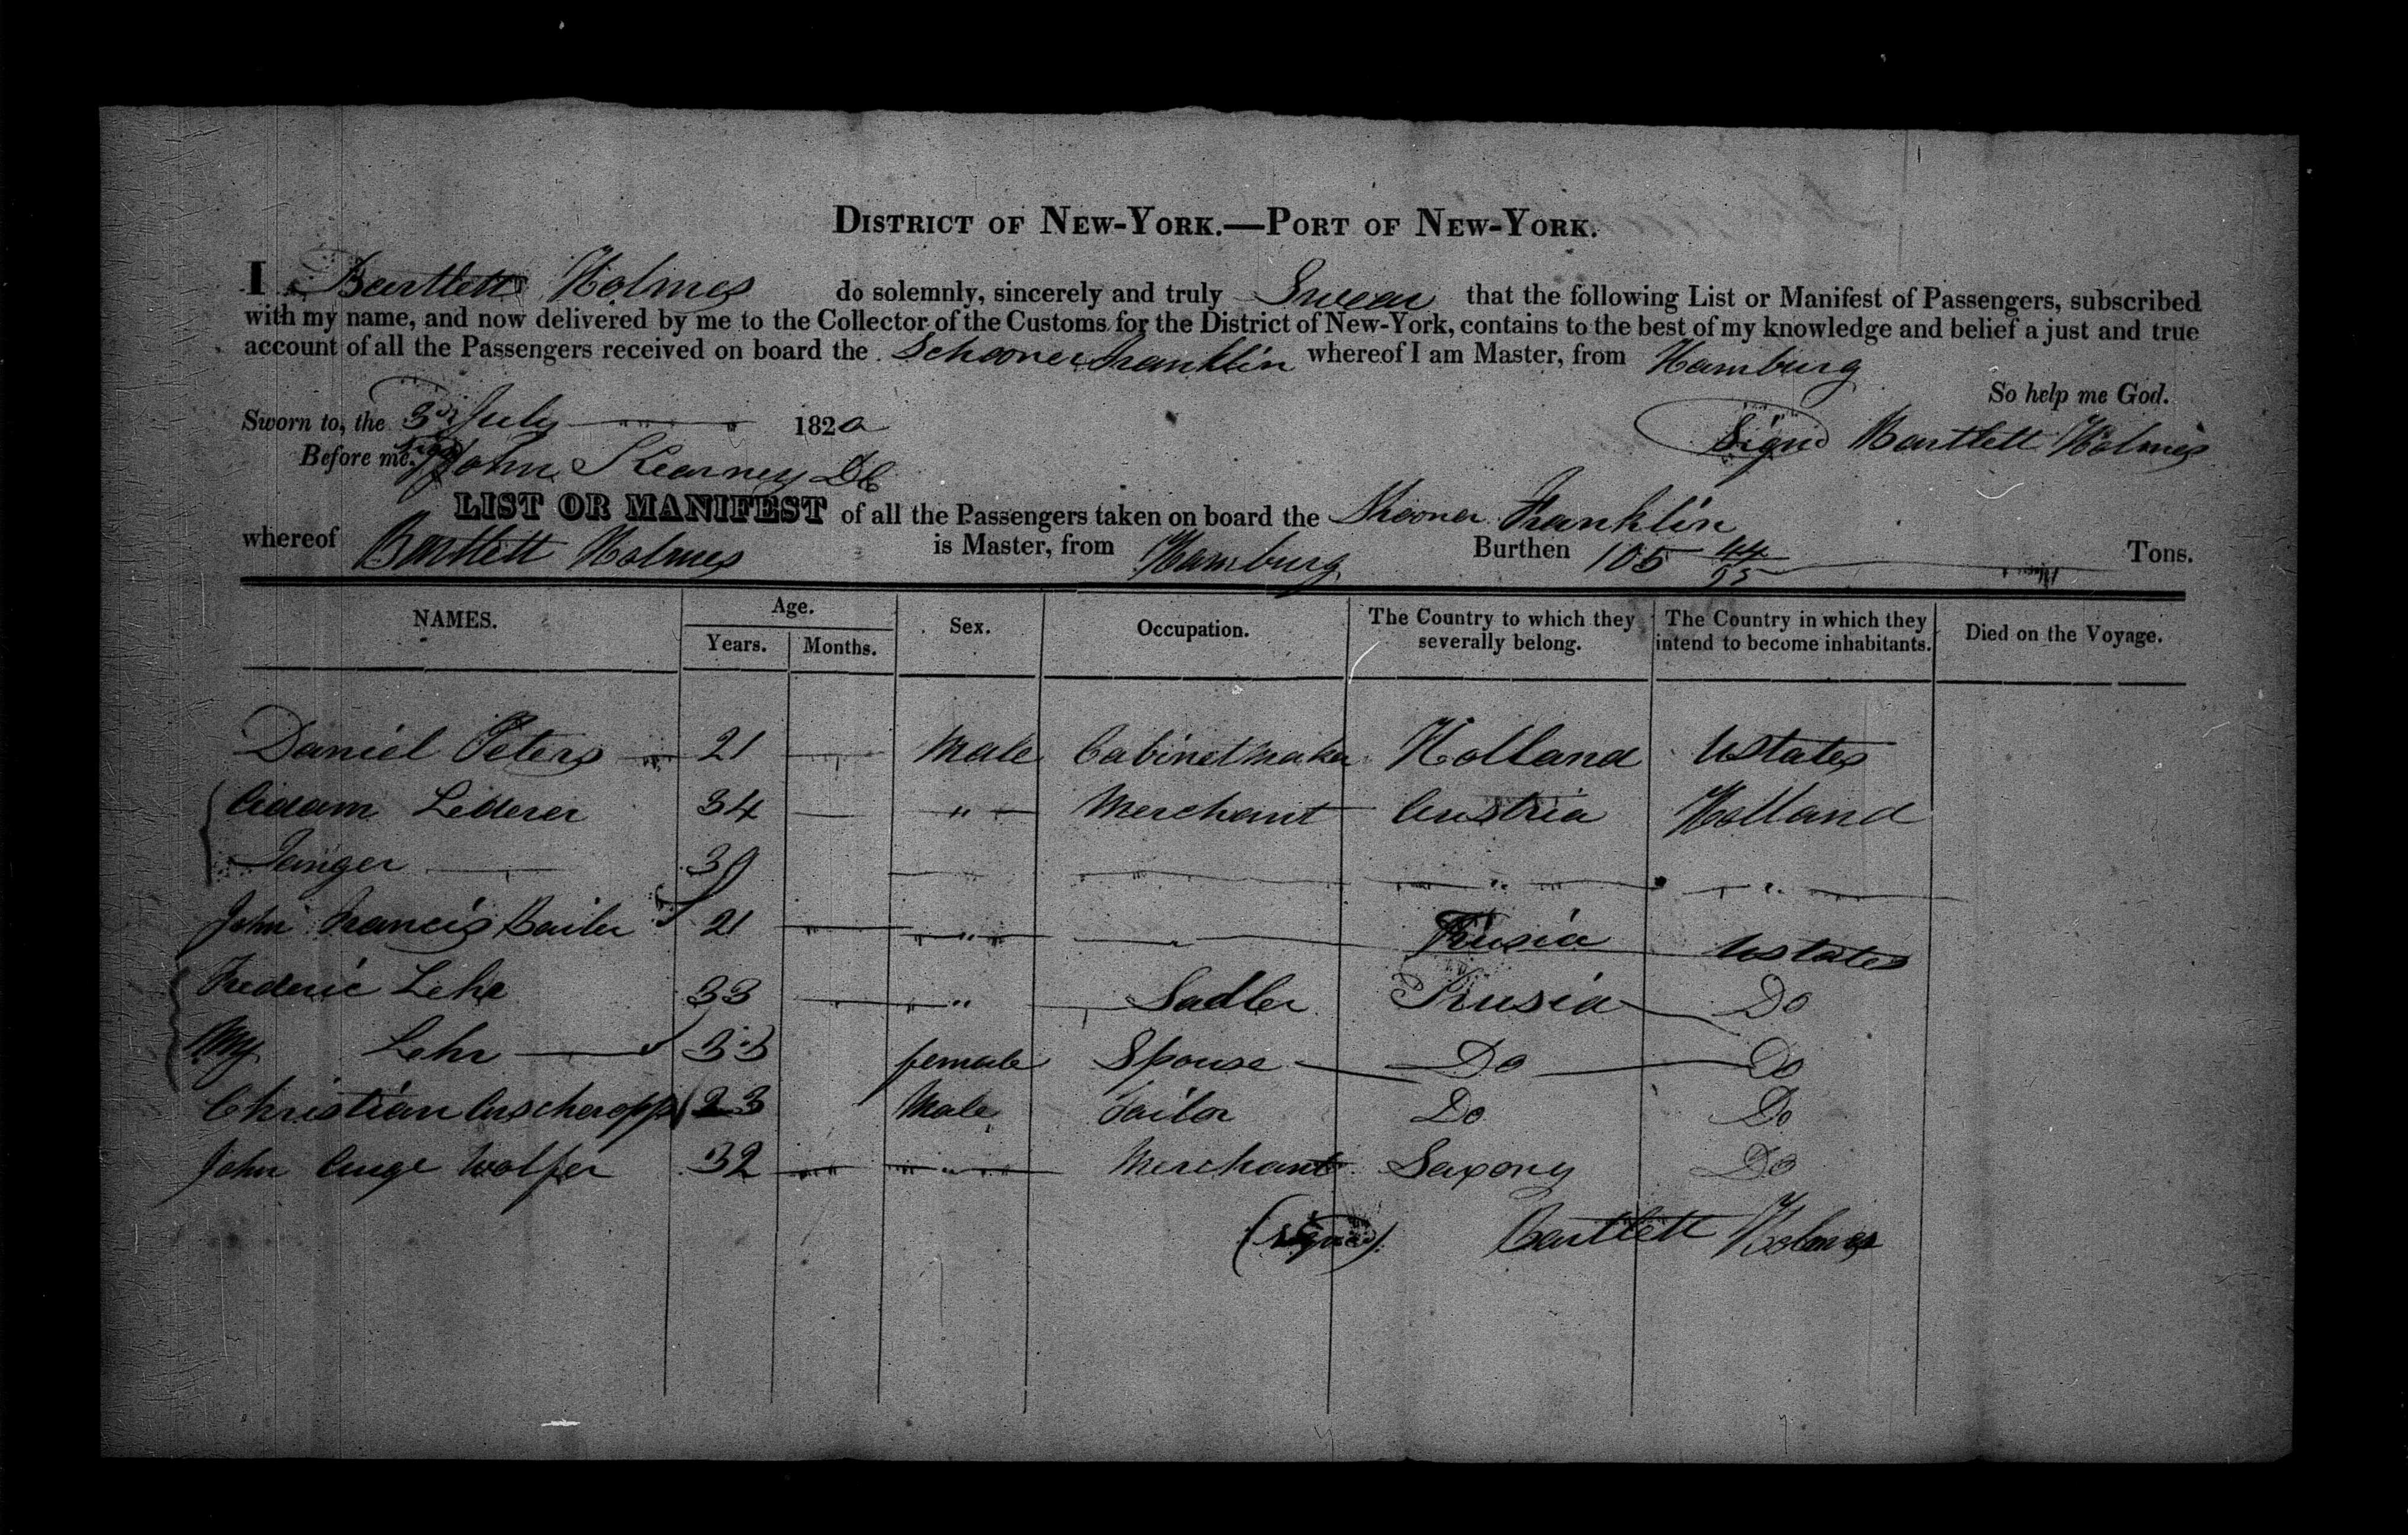 DISTRICT OF NEW-YORK.—PORT OF NEW-YORK.
I Bartlett Holmes do solemnly, sincerely and truly Swear that the following List or Manifest of Passengers, subscribed
with my name, and now delivered by me to the Collector of the Customs for the District of New-York, contains to the best of my knowledge and belief a just and true
account of all the Passengers received on board the Schooner Franklin whereof I am Master, from Hamburg
So help me God.
Sworn to, the 3d July 1820
Signd Bartlett Holmes
Before me. John Kearney DC
LIST OR MANIFEST of all the Passengers taken on board the Skooner Franklin
whereof Bartlett Holmes is Master, from Hamburg Burthen 105 44/95 Tons.
NAMES. Age. Years. Months. Sex. Occupation. The Country to which they severally belong. The Country in which they intend to become inhabitants. Died on the Voyage.
Daniel Peters 21 Male Cabinetmaker Holland UStates
Adam Lederer 34 " Merchant Austria Holland
39 " "
John Francis 21 " UStates
Frederic Lehr 33 " Sadler Prusia Do
Lehr 33 female Spouse Do Do
Christian 23 Male Tailor Do Do
John Auge Wolfer 32 " Merchant Saxony Do
(signed) Bartlett Holmes